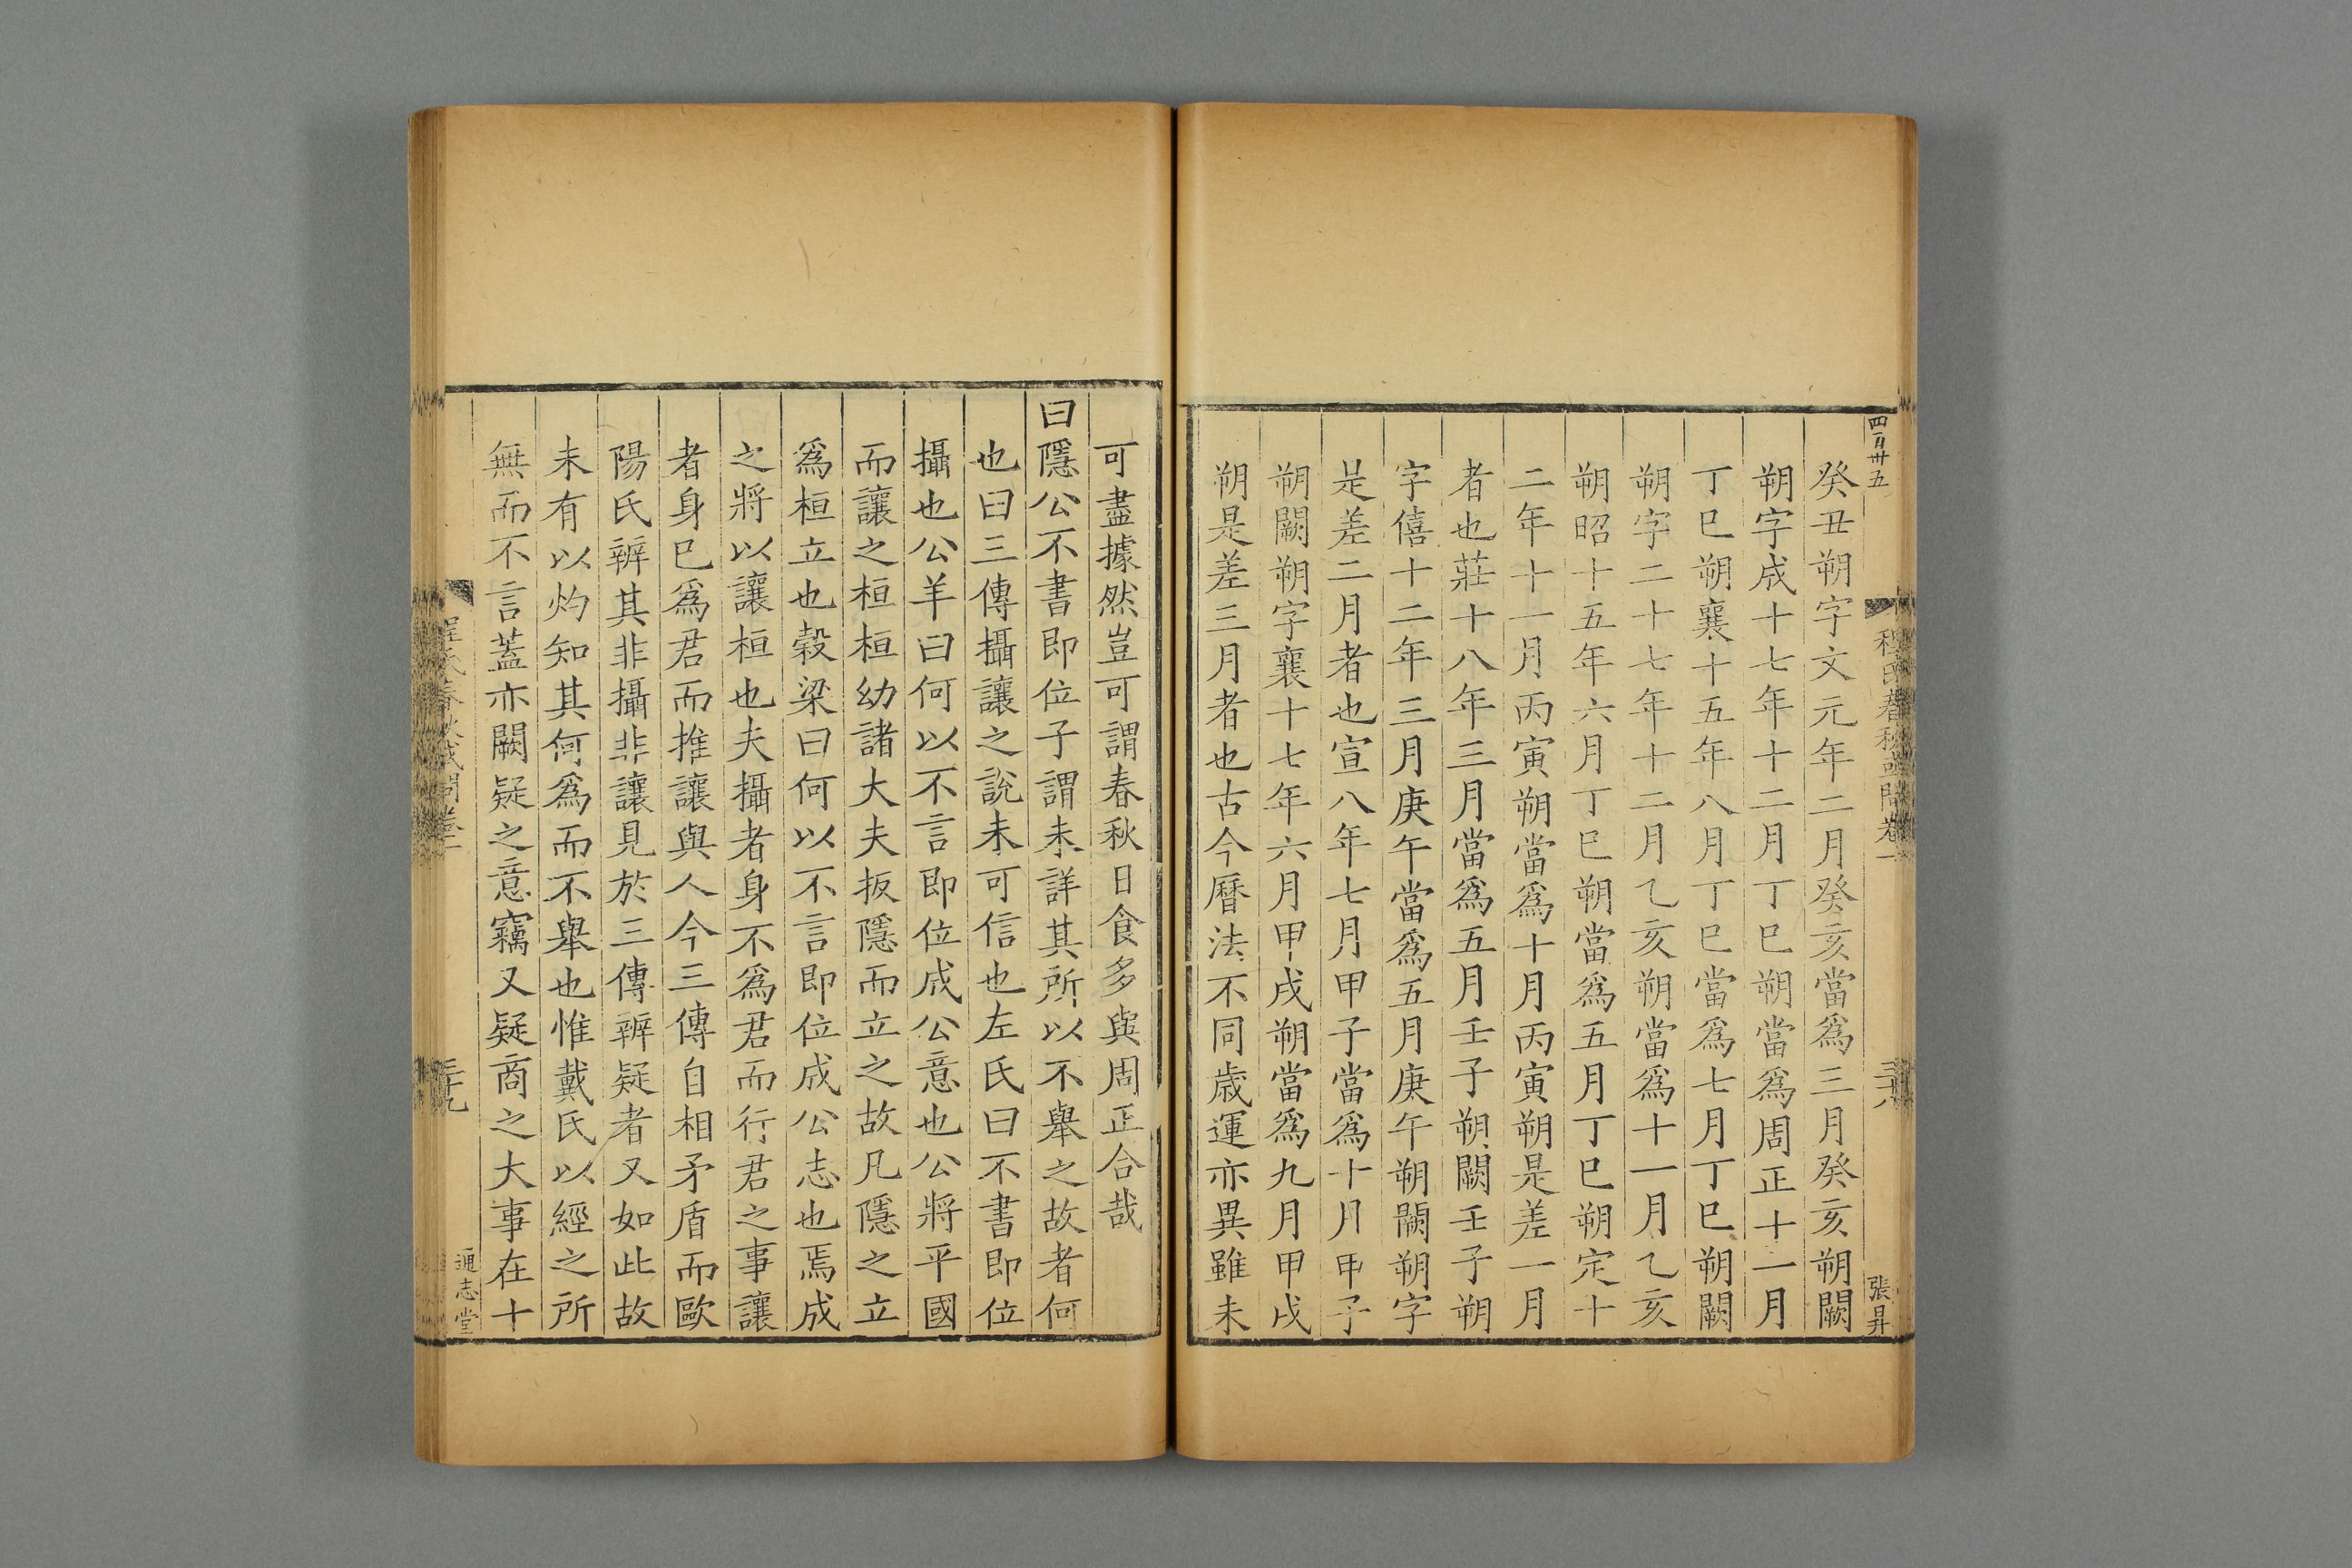 四百廿五
程氏春秋或問卷一
三十八
張昇
癸丑朔字文元年二月癸亥當爲三月癸亥朔闕
朔字成十七年十二月丁巳朔當爲周正十一月
丁巳朔襄十五年八月丁巳當爲七月丁巳朔闕
朔字二十七年十二月乙亥朔當爲十一月乙亥
朔昭十五年六月丁巳朔當爲五月丁巳朔定十
二年十一月丙寅朔當爲十月丙寅朔是差一月
者也莊十八年三月當爲五月壬子朔闕壬子朔
字僖十二年三月庚午當爲五月庚午朔闕朔字
是差二月者也宣八年七月甲子當爲十月甲子
朔闕朔字襄十七年六月甲戌朔當爲九月甲戌
朔是差三月者也古今曆法不同歲運亦異雖未
可盡據然豈可謂春秋日食多與周正合哉
曰隱公不書即位子謂未詳其所以不舉之故者何
也曰三傳攝讓之說未可信也左氏曰不書即位
攝也公羊曰何以不言即位成公意也公將平國
而讓之桓桓幼諸大夫扳隱而立之故凡隱之立
爲桓立也穀梁曰何以不言即位成公志也焉成
之將以讓桓也夫攝者身不爲君而行君之事讓
者身已爲君而推讓與人今三傳自相矛盾而歐
陽氏辨其非攝非讓見於三傳辨疑者又如此故
未有以灼知其何爲而不舉也惟戴氏以經之所
無而不言蓋亦闕疑之意竊又疑商之大事在十
程氏春秋或問卷一
三十九
通志堂